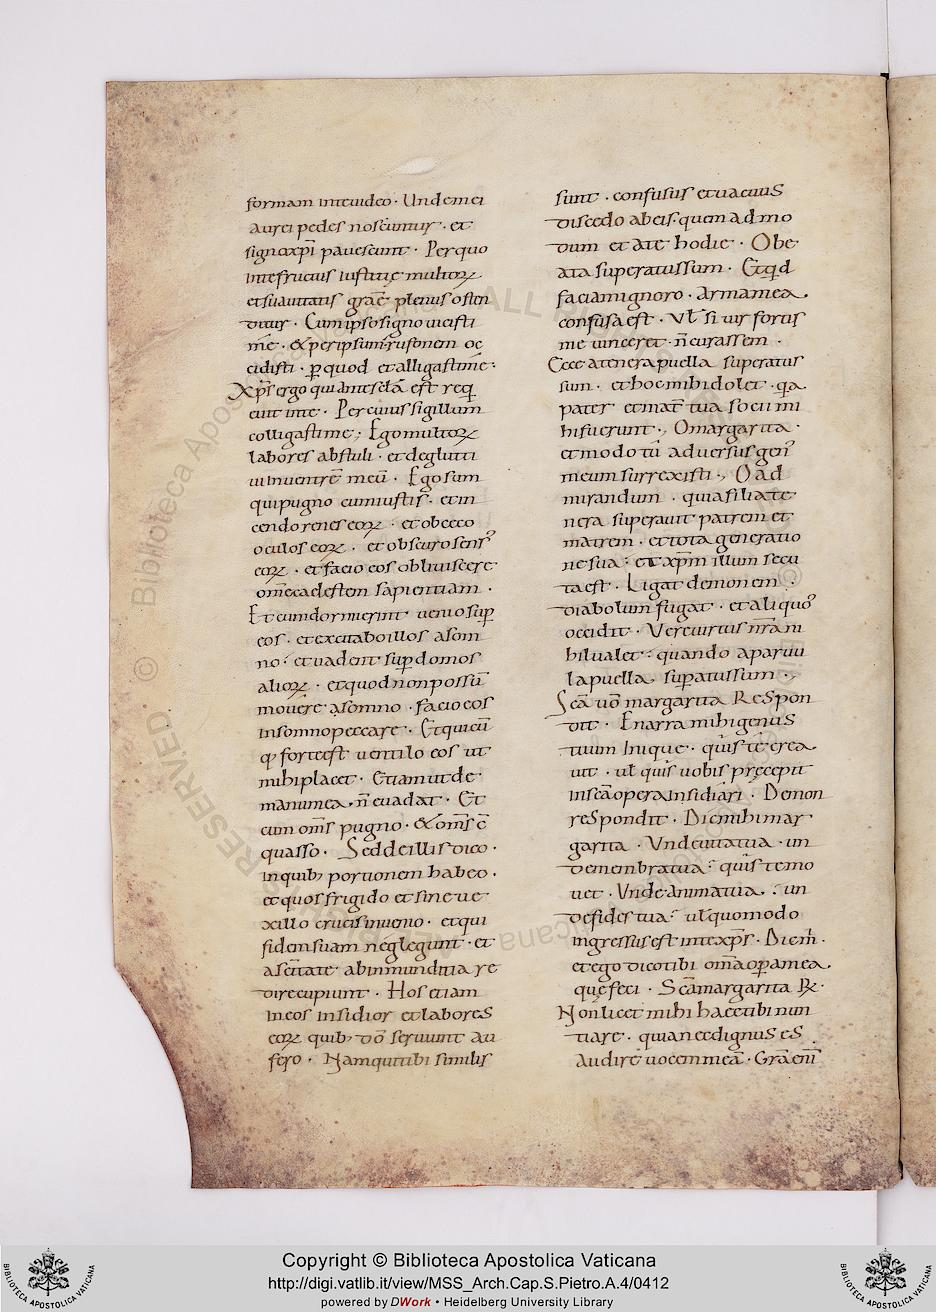 formam inte uideo · Unde mei
aurei pedes noscuntur · et
signo xp̄i pauescunt · Per quo
inte fructus iustitię multorꝝ
et suauitatis grae plenus osten
ditur · Cum ipso signo uicisti
me · & per ipsum rufonem oc
cidisti · ꝑ quod et alligasti me ·
Xp̄s ergo qui ante sc̄la est req
cuit inte · Per cuius sigillum
colligasti me ; Ego multorꝝ
labores abstuli · et deglutti
ui inuentrē meū · Ego sum
qui pugno cum iustis · et in
cendo renes eorꝝ · et obceco
oculos eorꝝ · et obscuro sens᾽
eorꝝ · et facio eos obliuiscere
om̄e caelestem sapientiam ·
Et cum dormierint uenio suꝑ
eos · et excitabo illos a som
no · et uadent suꝑ domos
aliorꝝ · et quod non possū
mouere a somno · facio eos
in somno peccare · Et qui cū
q, fortest uentilo eos ut
mihi placet · Etiam ut de
manu mea · n̄ euadat · Et
cum om̄s pugno · & om̄s c̄
quasso · Sed de illis dico ·
in quib; portionem habeo ·
et quos frigido et sine ue
xillo crucis inuenio · et qui
fidem suam neglegunt · et
a sc̄itate ab inmunditia re
dire cupiunt · Hos etiam
in eos insidior et labores
eorꝝ quib; dō seruiunt au
fero · Nam qui tibi similis
sunt · confusus et uacuus
discedo ab eis · quem ad mo
dum et a te hodie · O be
ata superatus sum · Et qd
faciam ignoro · arma mea
confusa est · Vł si uir fortis
me uinceret · n̄ curassem ·
Ecce a tenera puella superatus
sum · et hoc mihi dolet · qa
pater et mat̄ tua socii mi
hi fuerunt ·, O margarita ·
et modo tū aduersus gen᾽
meum surrexisti ·, O ad
mirandum · quia filia te
nera superauit patrem et
matrem · et tota generatio
ne sua · et xp̄m illum secu
ta est · Ligat demonem ·
diabolum fugat · et aliquo᾽
occidit · Vere uirtus nr̄a ni
hil ualet · quando a paruu
la puella suꝑatus sum ·,
Sc̄a uō margarita Respon
dit · Enarra mihi genus
tuum Inique · quis te crea
uit · uł quis uobis pręcepit
in sc̄a opera insidiari · Demon
respondit · Dic mihi mar
garita · Vnde uita tua · un
de membra tua · quis te mo
uet · Vnde anima tua · un
de fides tua · uł quomodo
ingressus est inte xp̄s · Dic m̄ ·
et ego dico tibi om̄a oꝑa mea ·
quę feci · Sc̄a margarita ℞ ·
Non licet mihi haec tibi nun
tiare · quia nec dignus es
audire uocem meā · Grāenī
Copyright © Biblioteca Apostolica Vaticana
http://digi.vatlib.it/view/MSS_Arch.Cap.S.Pietro.A.4/0412
powered by DWork • Heidelberg University Library
BIBLIOTECA APOSTOLICA VATICANA
BIBLIOTECA APOSTOLICA VATICANA